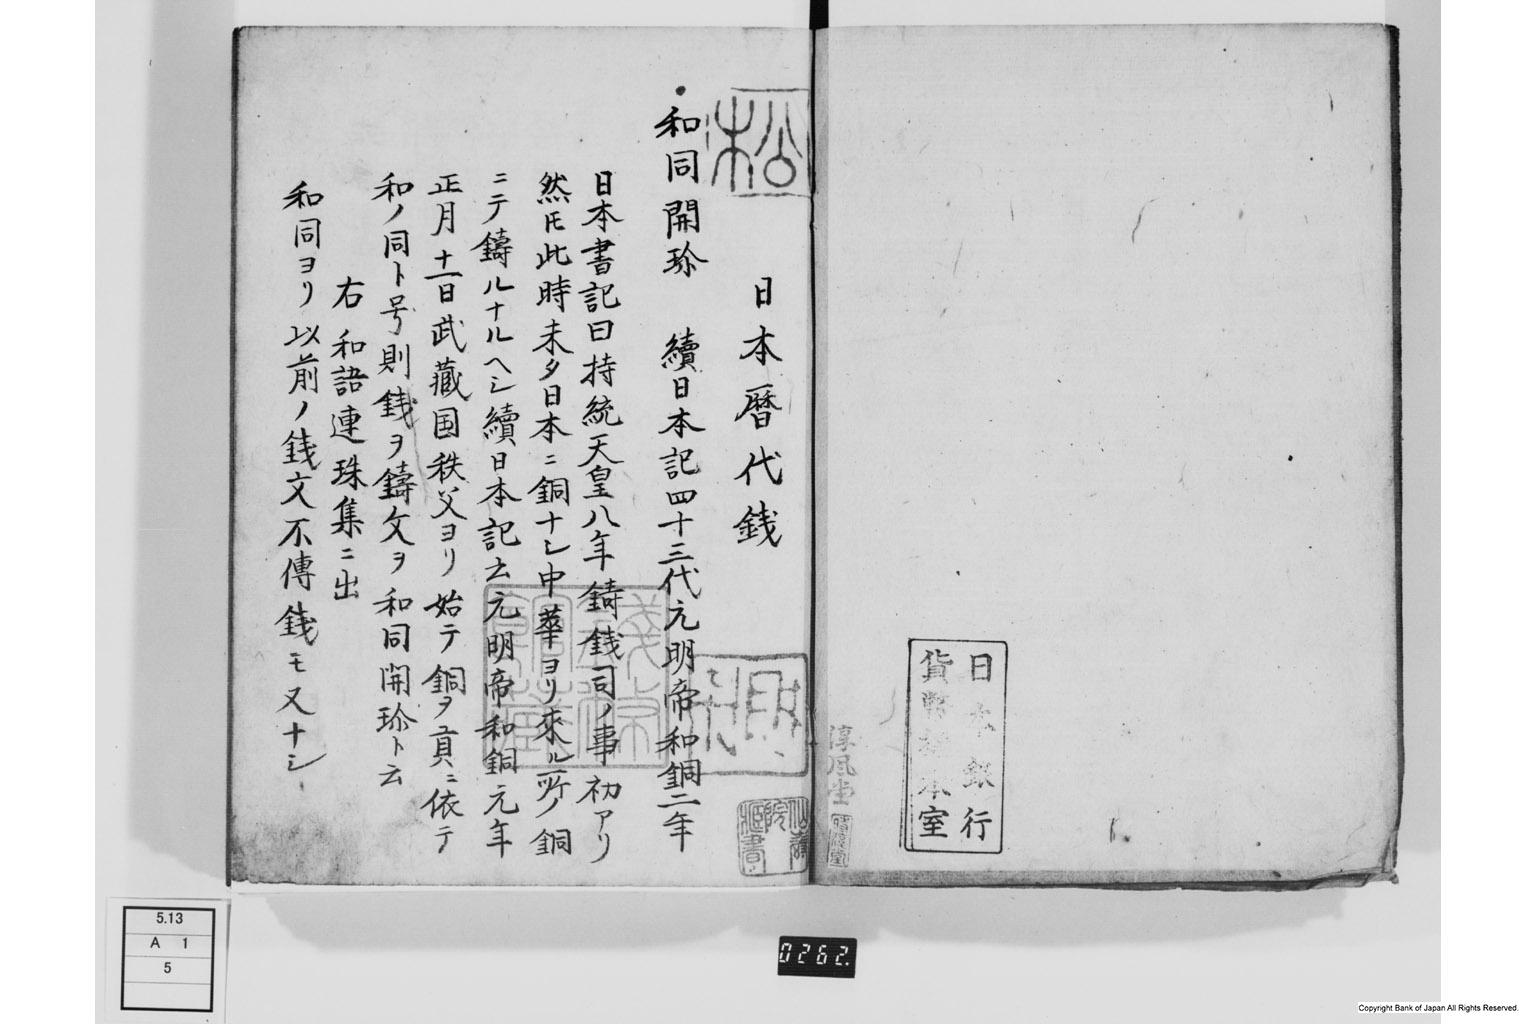 日本銀行
貨幣標本室
淳風堂
日本暦代銭
和同開珎　續日本記四十三代元明帝和銅二年
日本書記曰持統天皇八年鑄銭司ノ事初アリ
然𪜈此時未タ日本ニ銅ナシ中華ヨリ來ル所ノ銅
ニテ鑄ルナルヘシ續日本記云元明帝和銅元年
正月十一日武藏国秩父ヨリ始テ銅ヲ貢ニ依テ
和ノ同ト号則銭ヲ鑄文ヲ和同開珎ト云
右和語連珠集ニ出
和同ヨリ以前ノ銭文不傳銭モ又ナシ
5.13
A 1
5
0262.
Copyright Bank of Japan All Rights Reserved.